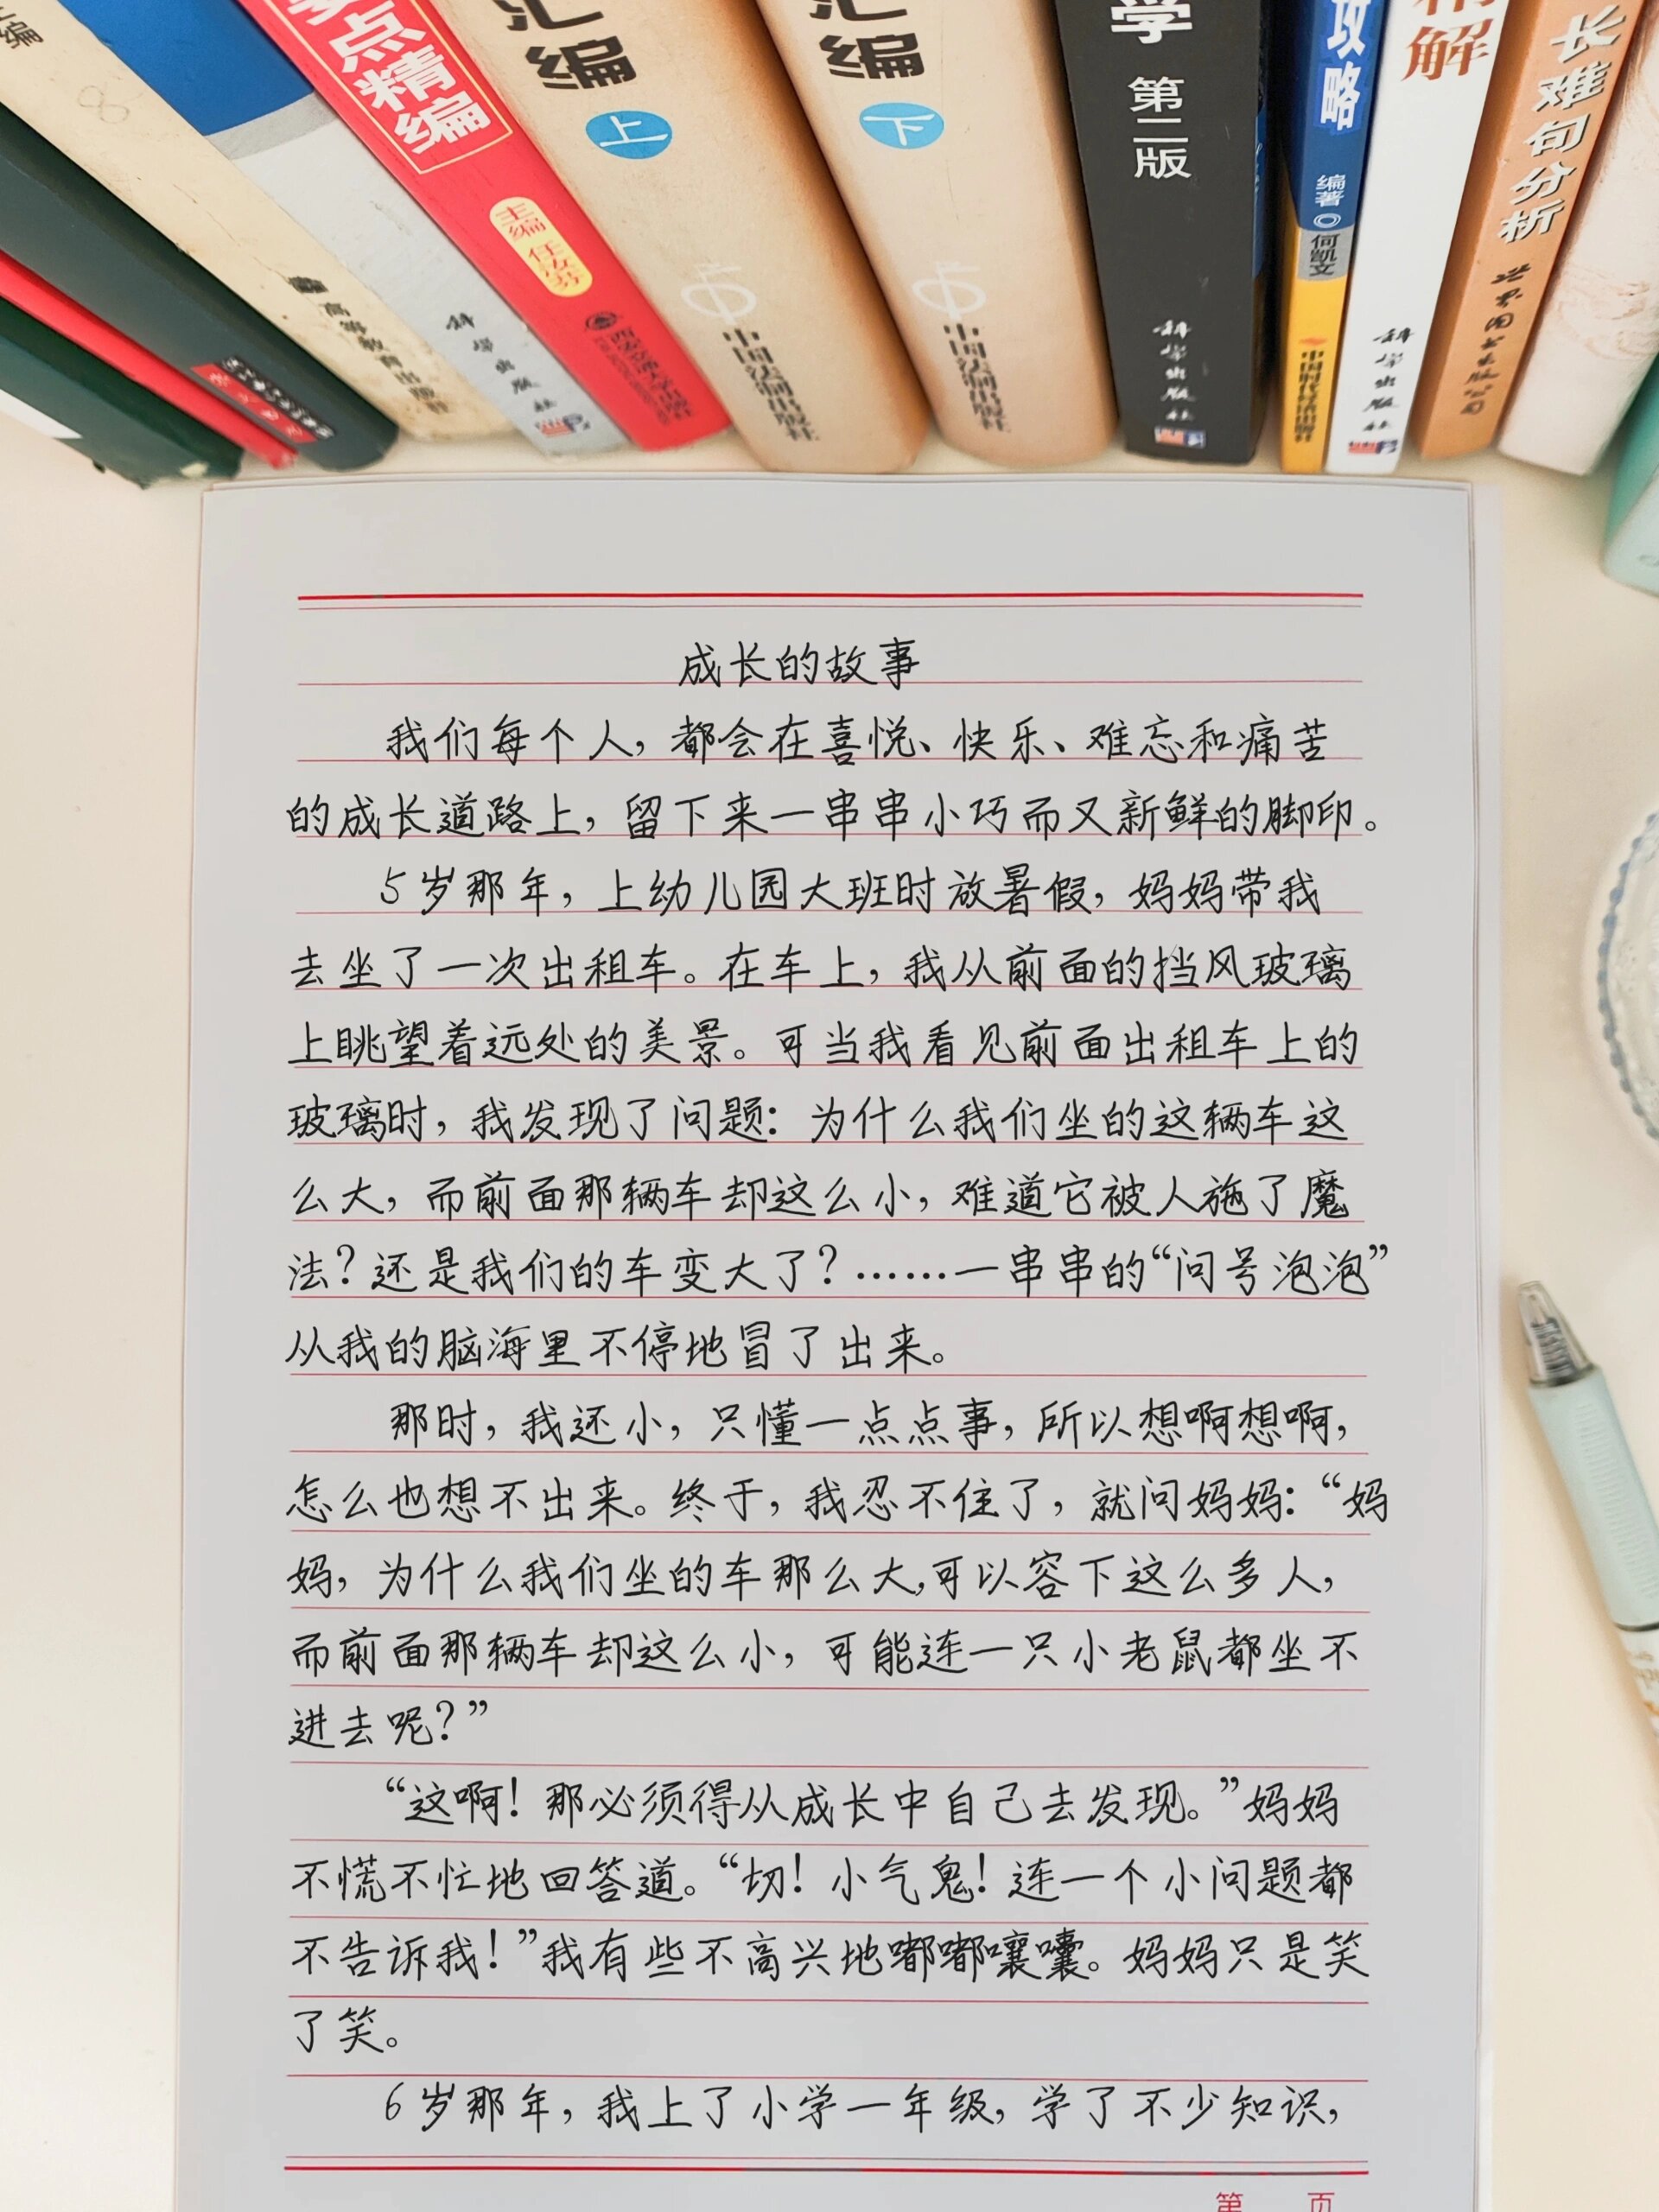 主编
高等教育出版社
科学出版社
点精编
主编 任汝芬
西安交通大学出版社
汇编
上
中国法制出版社
汇编
下
中国法制出版社
学 第二版
科学出版社
攻略
编著◎何凯文
解
科学出版社
长难句分析
成长的故事
我们每个人，都会在喜悦、快乐、难忘和痛苦
的成长道路上，留下来一串串小巧而又新鲜的脚印。
5岁那年，上幼儿园大班时放暑假，妈妈带我
去坐了一次出租车。在车上，我从前面的挡风玻璃
上眺望着远处的美景。可当我看见前面出租车上的
玻璃时，我发现了问题：为什么我们坐的这辆车这
么大，而前面那辆车却这么小，难道它被人施了魔
法？还是我们的车变大了？……一串串的“问号泡泡”
从我的脑海里不停地冒了出来。
那时，我还小，只懂一点点事，所以想啊想啊，
怎么也想不出来。终于，我忍不住了，就问妈妈：“妈
妈，为什么我们坐的车那么大，可以容下这么多人，
而前面那辆车却这么小，可能连一只小老鼠都坐不
进去呢？”
“这啊！那必须得从成长中自己去发现。”妈妈
不慌不忙地回答道。“切！小气鬼！连一个小问题都
不告诉我！”我有些不高兴地嘟嘟嚷囔。妈妈只是笑
了笑。
6岁那年，我上了小学一年级，学了不少知识，
第 页